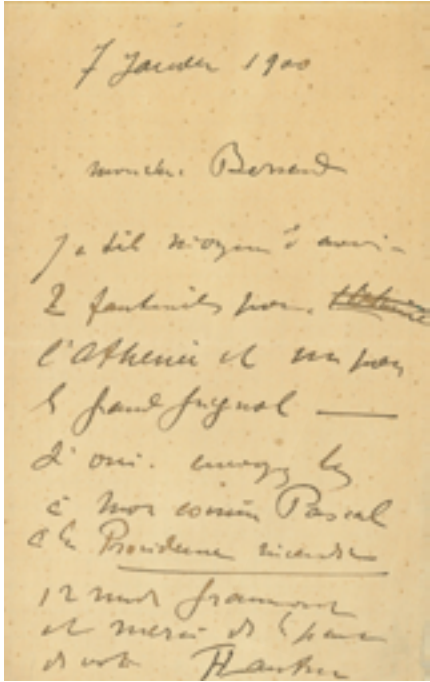 7 Janvier 1900
mon cher Bernard
Y a t'il moyen d'avoir
2 fauteuils pour
l'Athenée et un pour
le Grand Guignol —
Si oui. envoyez les
à mon cousin Pascal
à la Providence incendie
12 rue de Grammont
et merci de la part
de votre